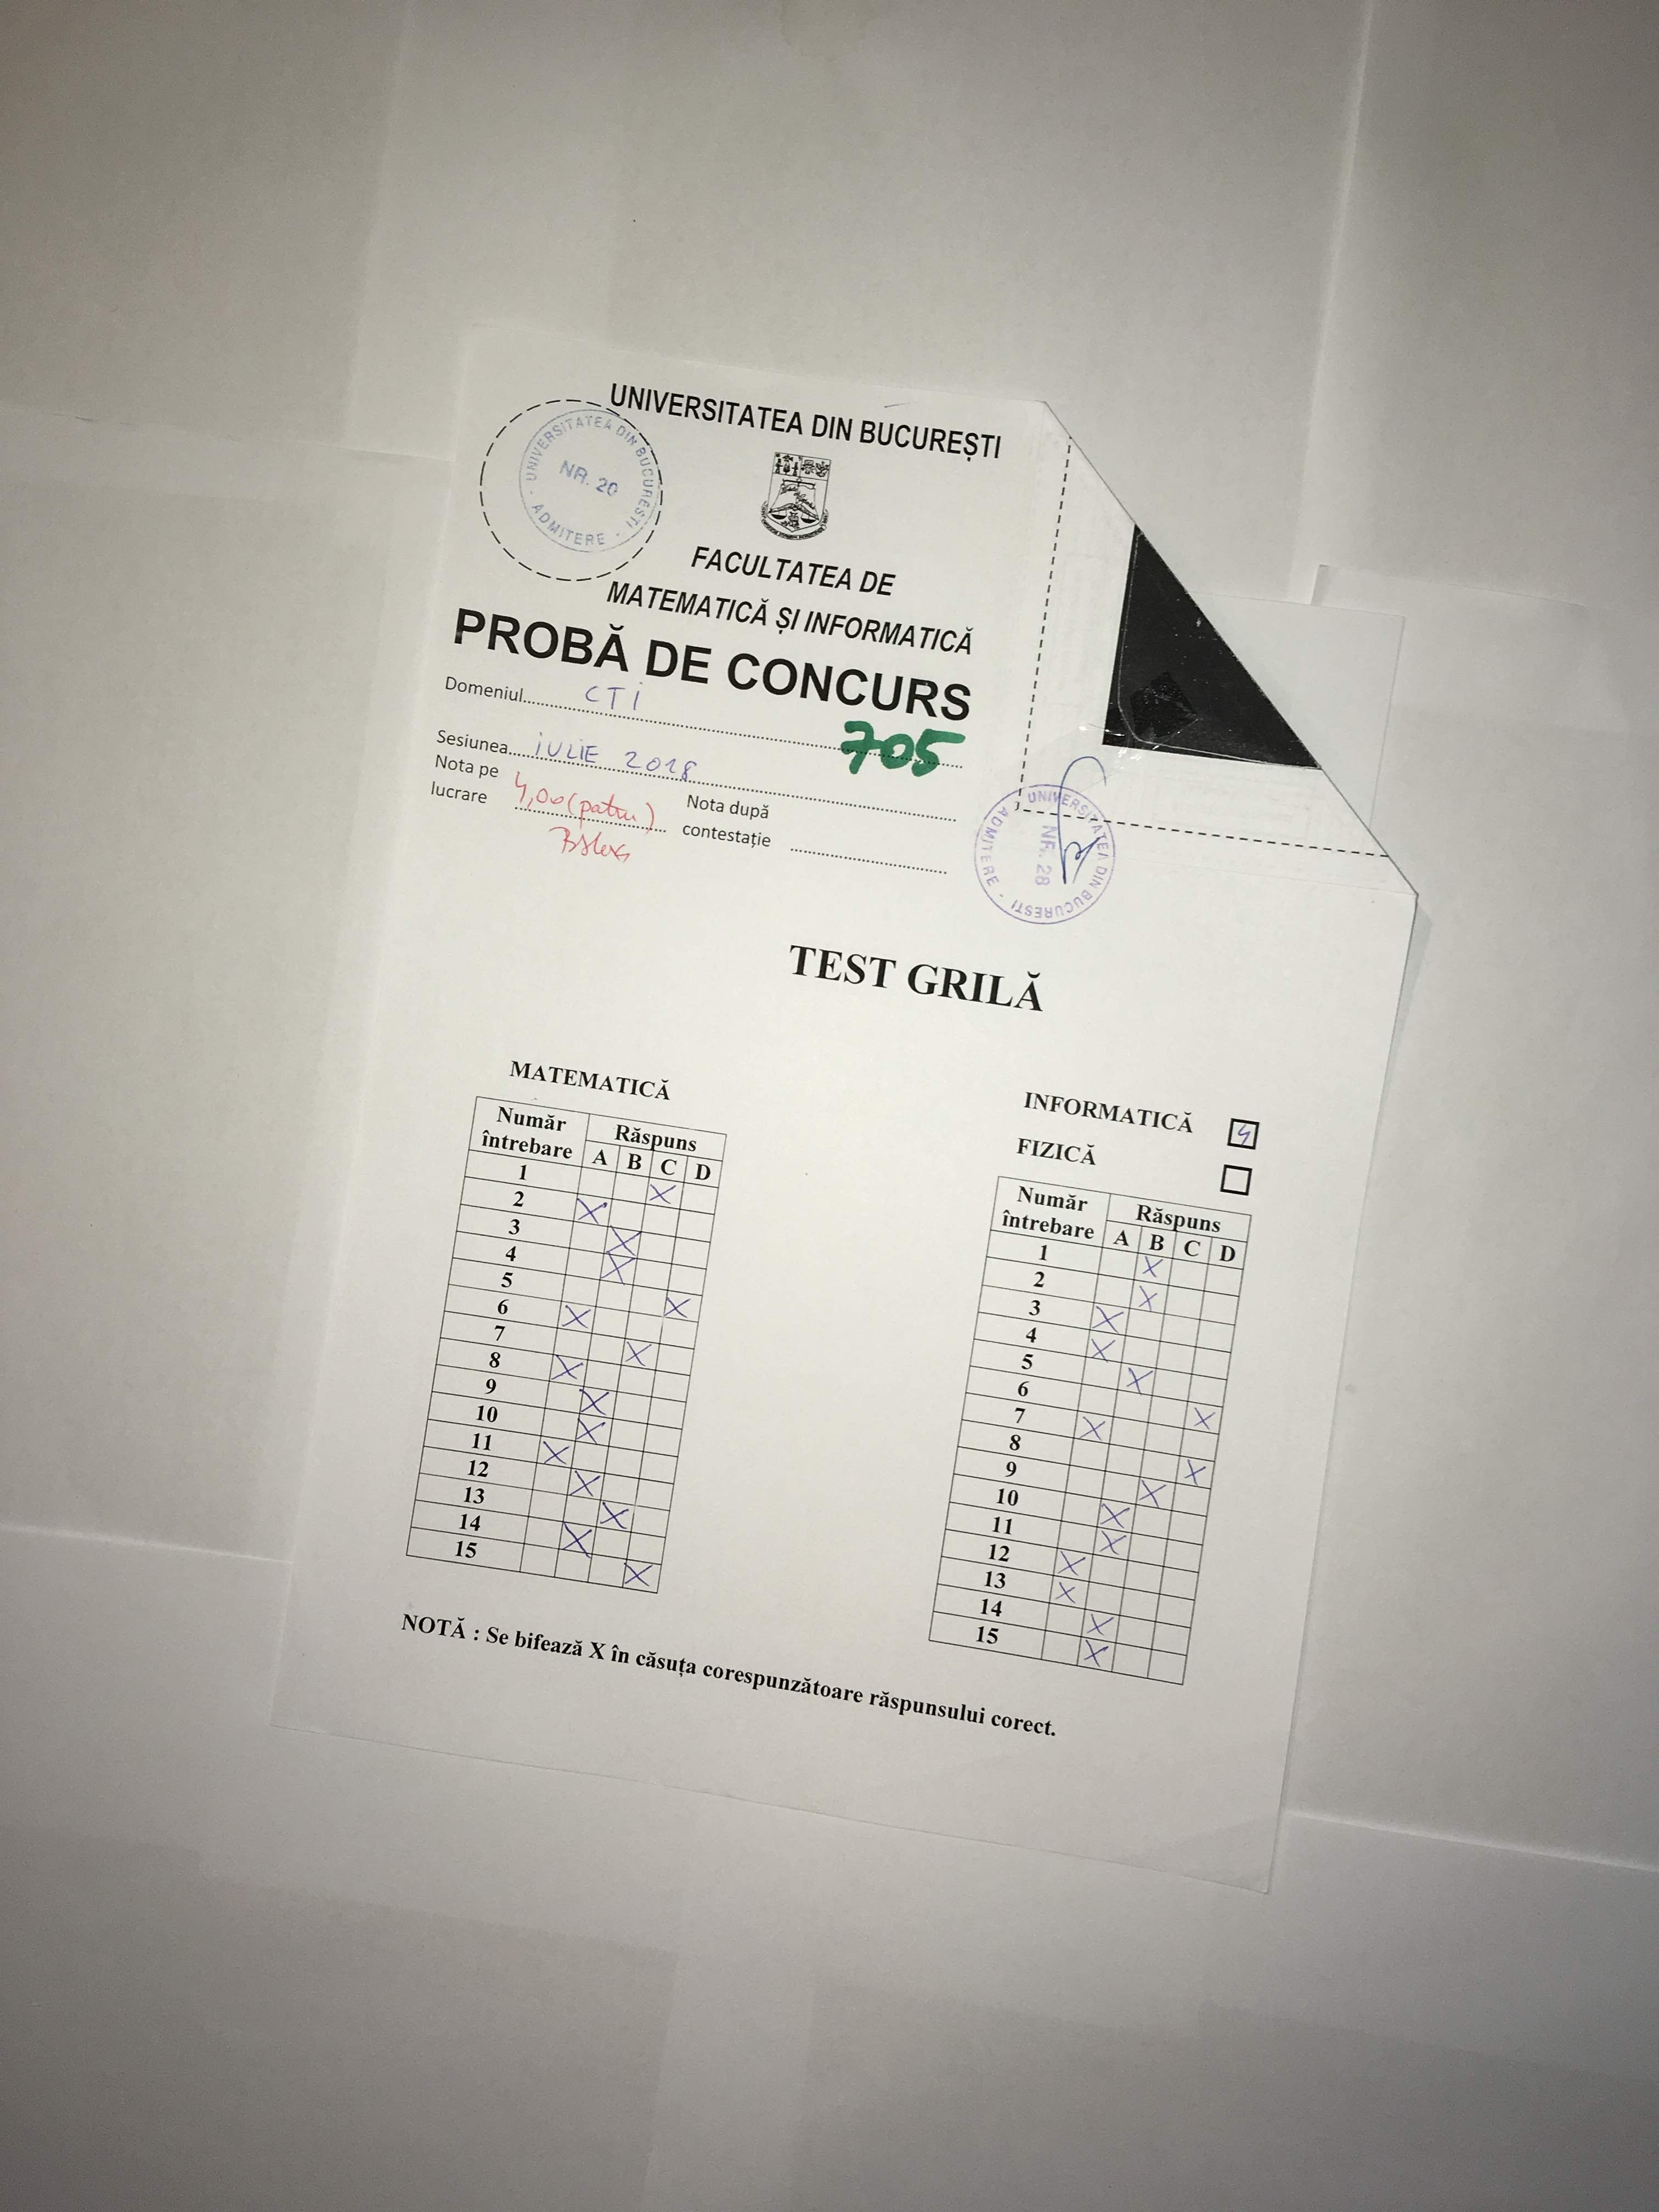 UNIVERSITATEA DIN BUCUREȘTI
UNIVERSITATEA DIN BUCURESTI
NR. 20
· ADMITERE ·
FACULTATEA DE
MATEMATICĂ ȘI INFORMATICĂ
PROBĂ DE CONCURS
Domeniul CTI
705
Sesiunea IULIE 2018
Nota pe
lucrare 4,00 (patru)
Nota după
contestație
UNIVERSITATEA DIN BUCURESTI
NR. 28
· ADMITERE ·
TEST GRILĂ
MATEMATICĂ
Număr
întrebare
Răspuns
A B C D
1 X
2 X
3 X
4 X
5 X
6 X
7 X
8 X
9 X
10 X
11 X
12 X
13 X
14 X
15 X
INFORMATICĂ
FIZICĂ
Număr
întrebare
Răspuns
A B C D
1 X
2 X
3 X
4 X
5 X
6 X
7 X
8 X
9 X
10 X
11 X
12 X
13 X
14 X
15 X
NOTĂ : Se bifează X în căsuța corespunzătoare răspunsului corect.